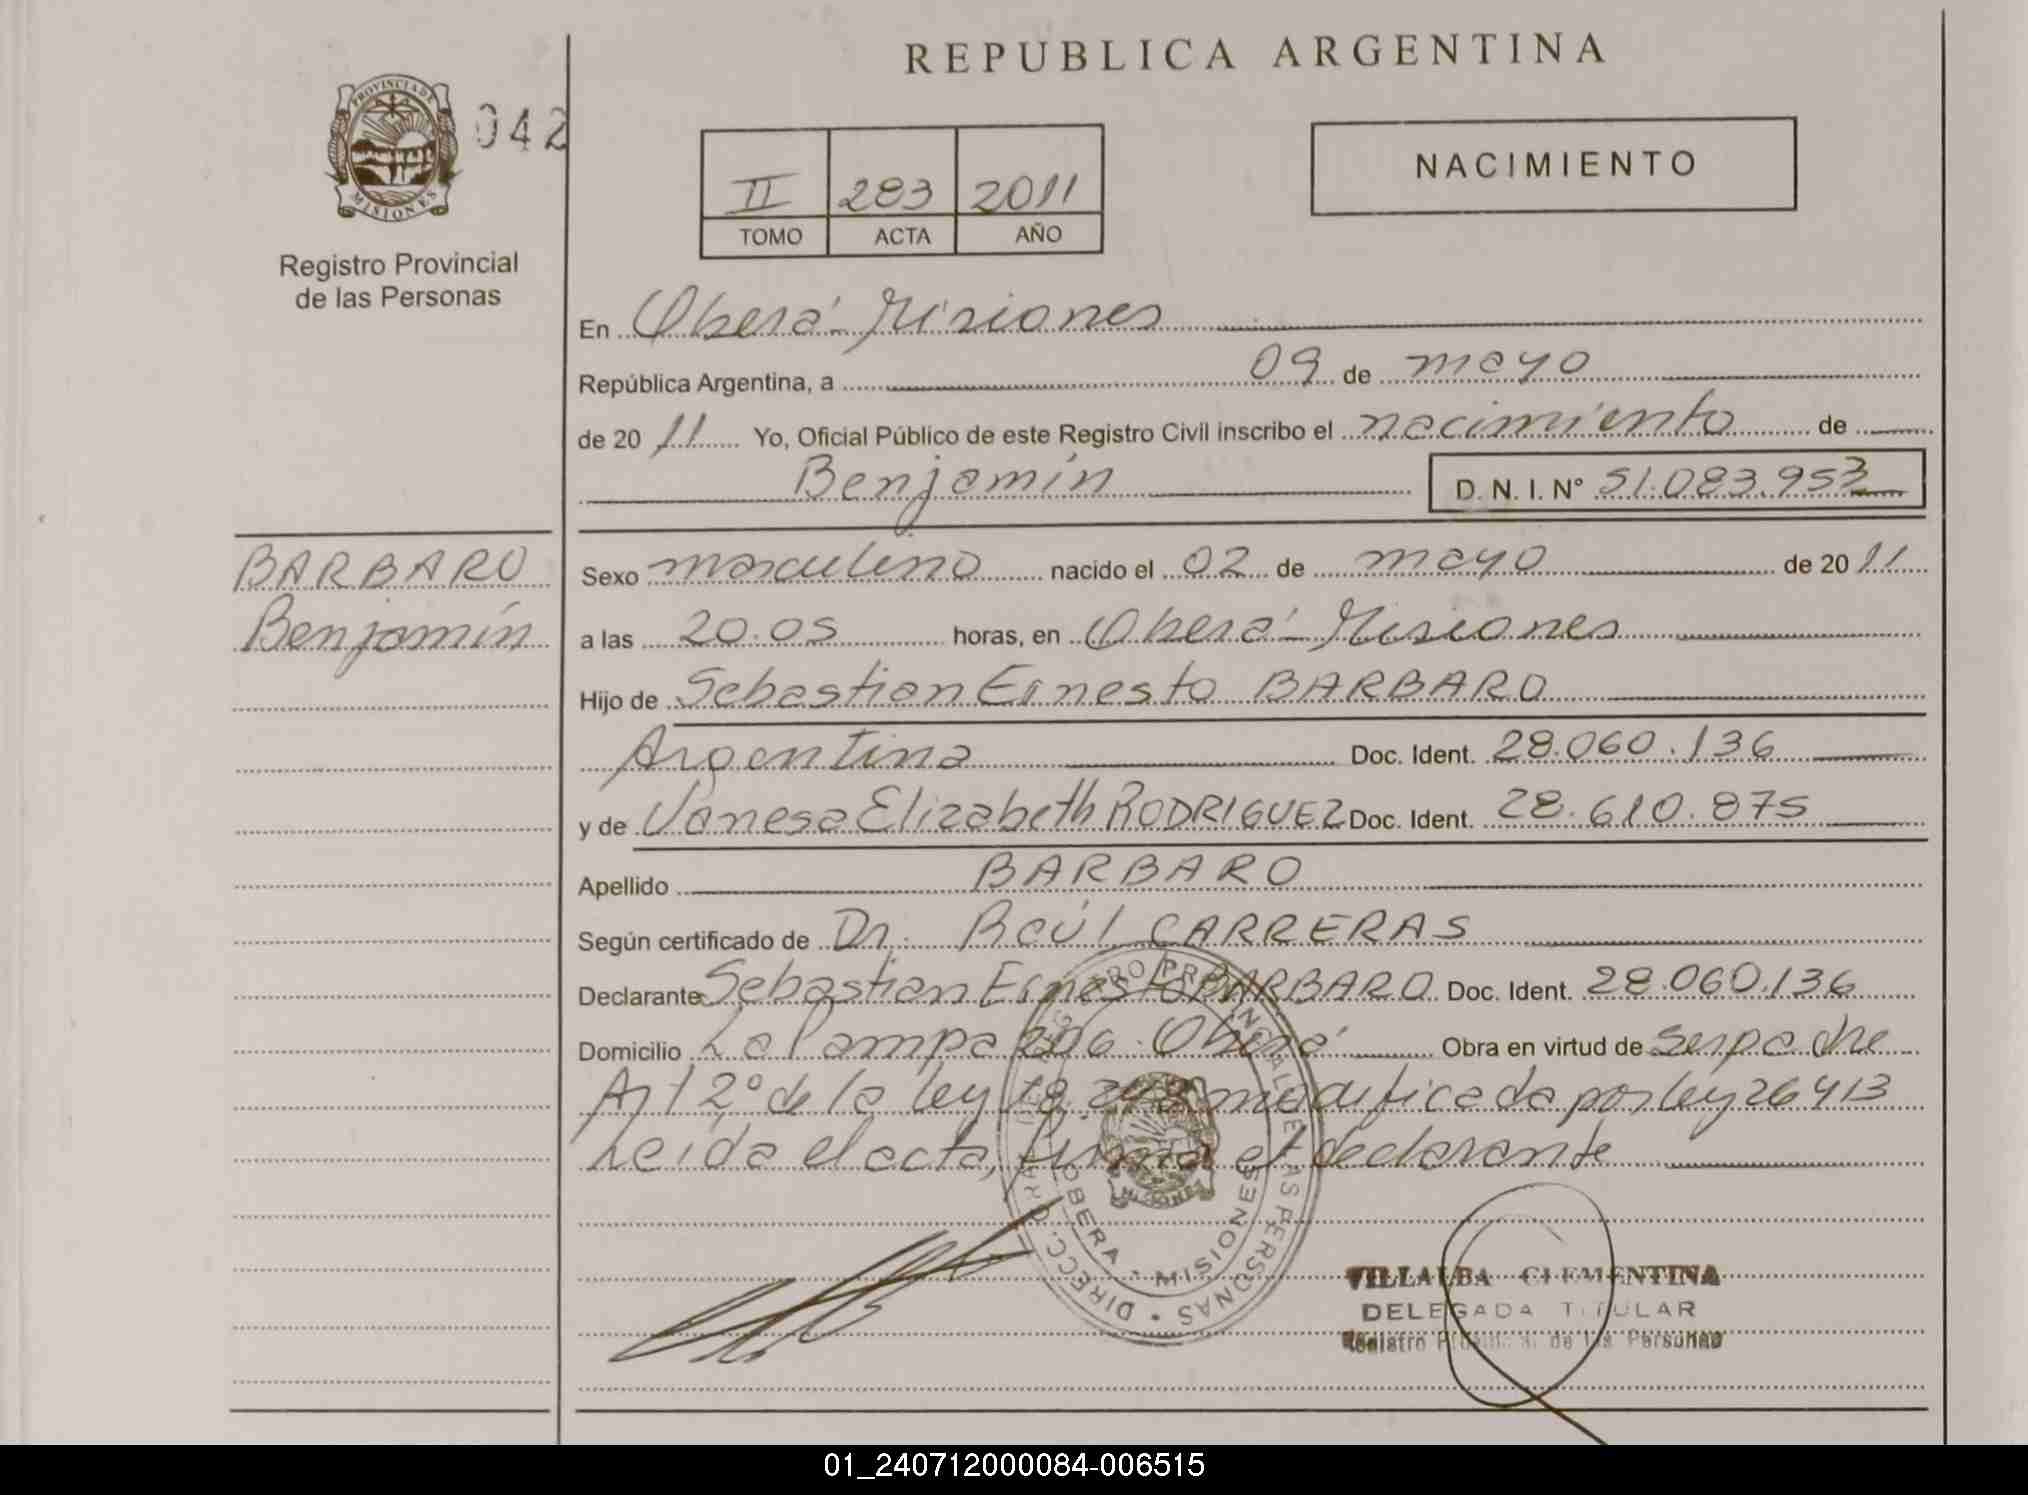 REPUBLICA ARGENTINA
PROVINCIA DE
MISIONES
042
NACIMIENTO
II 283 2011
TOMO ACTA AÑO
Registro Provincial
de las Personas
En Oberá - Misiones
República Argentina, a 09 de mayo
de 2011 Yo, Oficial Público de este Registro Civil inscribo el nacimiento de
Benjamín D. N. I. N° 51.083.953
BARBARO
Benjamín
Sexo masculino nacido el 02 de mayo de 2011
a las 20.05 horas, en Oberá - Misiones
Hijo de Sebastian Ernesto BARBARO
Argentina Doc. Ident. 28.060.136
y de Vanesa Elizabeth RODRIGUEZ Doc. Ident. 28.610.875
Apellido BARBARO
Según certificado de Dr. Raúl CARRERAS
Declarante Sebastian Ernesto BARBARO Doc. Ident. 28.060.136
Domicilio La Pampa Oberá Obra en virtud de ser padre
Art 2° de la ley modificada por ley 26413
Leída el acta, firma el declarante
DIRECC. GRAL. DEL REGISTRO PROVINCIAL DE LAS PERSONAS
OBERA - MISIONES
MISIONES
VILLALBA CLEMENTINA
DELEGADA TITULAR
Registro Provincial de las Personas
01_240712000084-006515